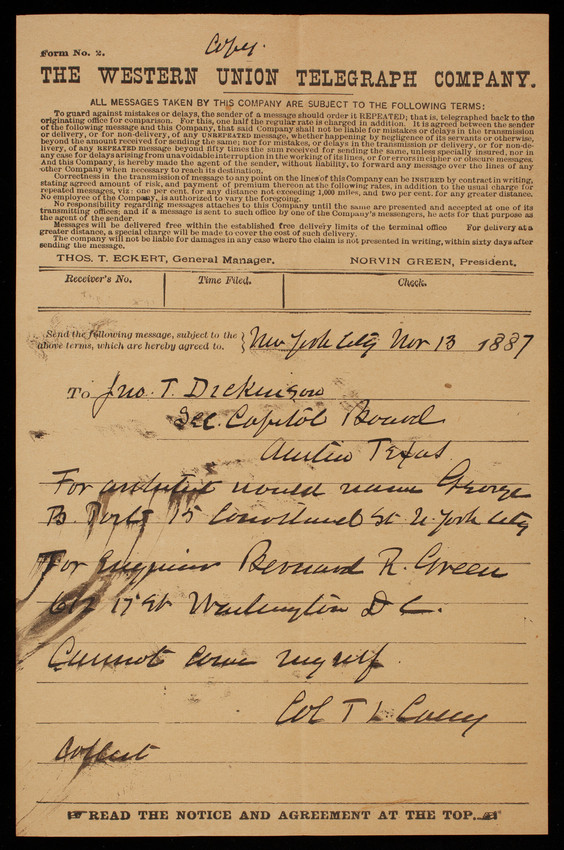 Copy.
Form No. 2.
THE WESTERN UNION TELEGRAPH COMPANY.
ALL MESSAGES TAKEN BY THIS COMPANY ARE SUBJECT TO THE FOLLOWING TERMS:
To guard against mistakes or delays, the sender of a message should order it REPEATED; that is, telegraphed back to the
originating office for comparison. For this, one half the regular rate is charged in addition. It is agreed between the sender
of the following message and this Company, that said Company shall not be liable for mistakes or delays in the transmission
or delivery, or for non-delivery, of any UNREPEATED message, whether happening by negligence of its servants or otherwise,
beyond the amount received for sending the same; nor for mistakes, or delays in the transmission or delivery, or for non-de-
livery, of any REPEATED message beyond fifty times the sum received for sending the same, unless specially insured, nor in
any case for delays arising from unavoidable interruption in the working of its lines, or for errors in cipher or obscure messages.
And this Company, is hereby made the agent of the sender, without liability, to forward any message over the lines of any
other Company when necessary to reach its destination.
Correctness in the transmission of message to any point on the lines of this Company can be INSURED by contract in writing,
stating agreed amount of risk, and payment of premium thereon at the following rates, in addition to the usual charge for
repeated messages, viz: one per cent. for any distance not exceeding 1,000 miles, and two per cent. for any greater distance.
No employee of the Company, is authorized to vary the foregoing.
No responsibility regarding messages attaches to this Company until the same are presented and accepted at one of its
transmitting offices; and if a message is sent to such office by one of the Company's messengers, he acts for that purpose as
the agent of the sender.
Messages will be delivered free within the established free delivery limits of the terminal office For delivery at a
greater distance, a special charge will be made to cover the cost of such delivery.
The company will not be liable for damages in any case where the claim is not presented in writing, within sixty days after
sending the message.
THOS. T. ECKERT, General Manager. NORVIN GREEN, President.
Receiver's No. Time Filed. Check.
Send the following message, subject to the
above terms, which are hereby agreed to.
New York City Nov 13 1887
To Jno. T. Dickinson
Sec. Capitol Board
Austin Texas
For architect would name George
B. Post 15 Cortlandt St N. York City
For Engineer Bernard R. Green
612 17 St Washington D C.
Cannot come myself.
Col T L Casey
Collect
READ THE NOTICE AND AGREEMENT AT THE TOP.